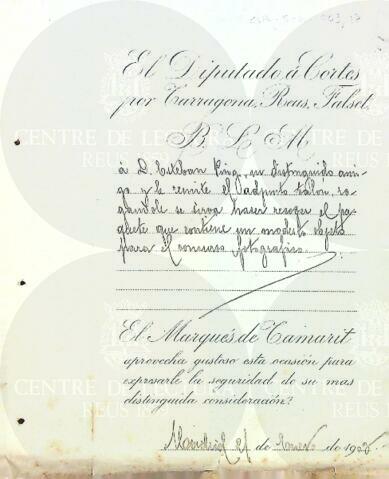 El Diputado á Cortes
por Tarragona, Reus, Falset,
B. L. M.
á D. Esteban Puig, su distinguido ami-
go y le remite el adjunto talon, ro-
gandole se sirva hacer recoger el pa-
quete que contiene un modesto objeto
para el concurso fotografico.
El Marqués de Tamarit
aprovecha gustoso esta ocasión para
expresarle la seguridad de su mas
distinguida consideración.
Madrid 21 de Enero de 190
CENTRE DE LECTURA
REUS
CENTRE DE LECTURA
REUS